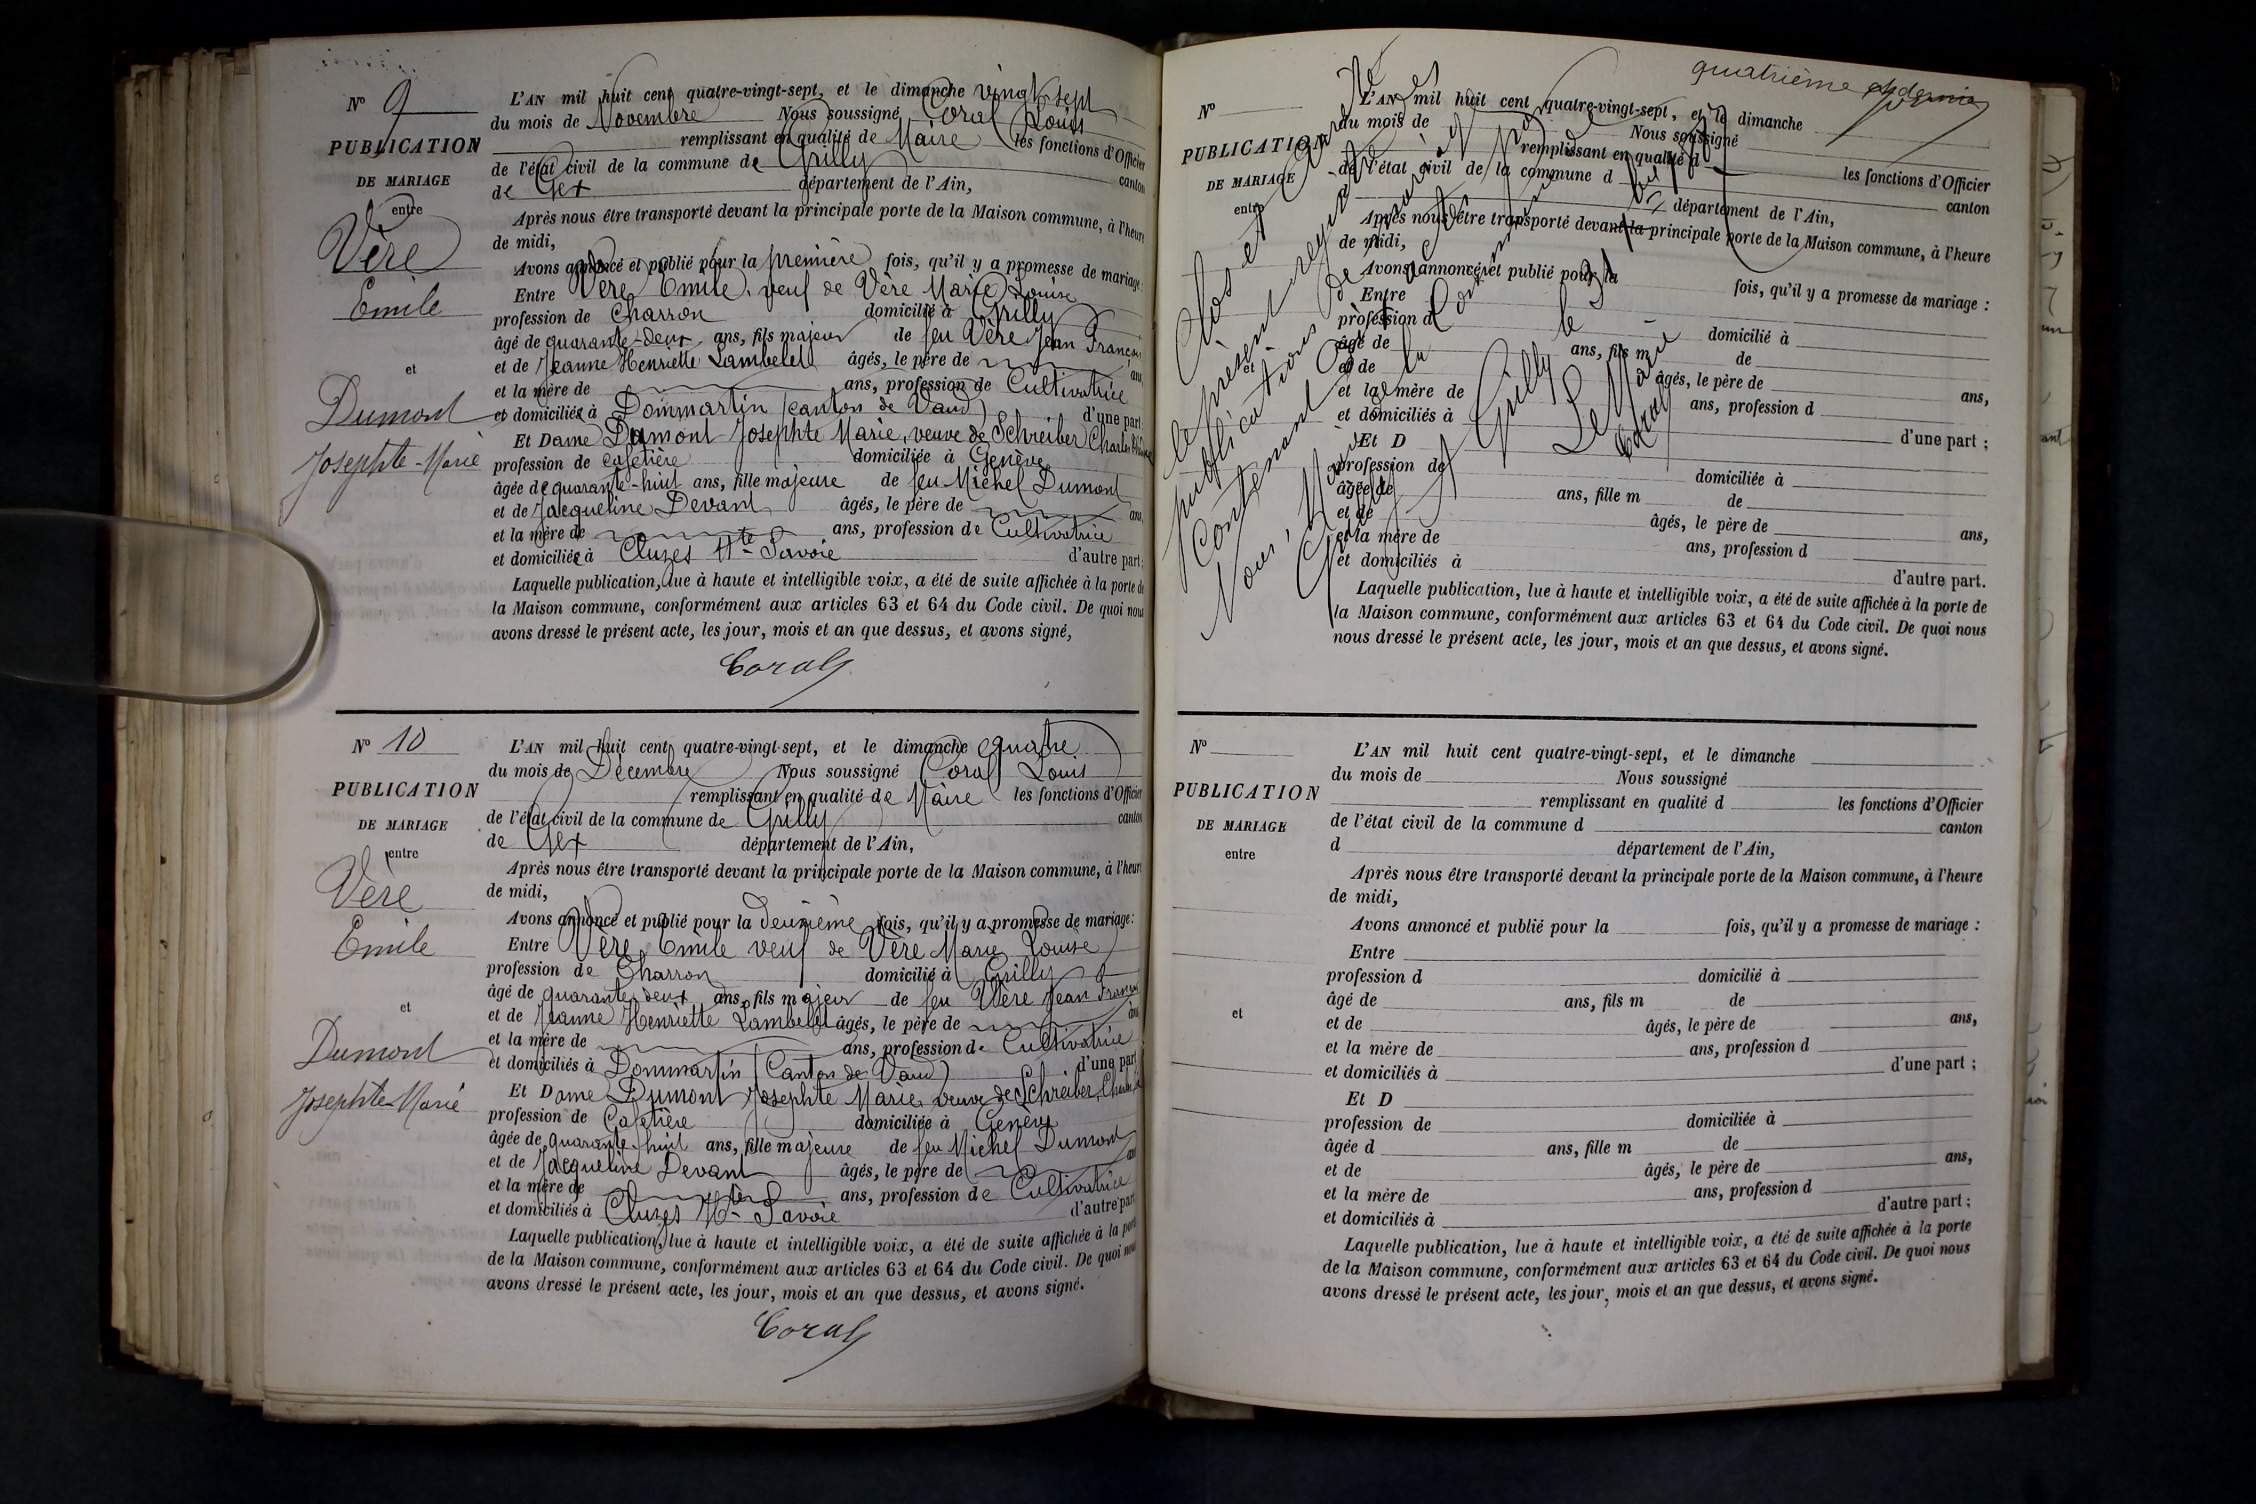 N° 9
PUBLICATION
DE MARIAGE
entre
Vère
Emile
et
Dumont
Josephte-Marie
L'AN mil huit cent quatre-vingt-sept, et le dimanche vingt sept
du mois de Novembre Nous soussigné Coral Louis
remplissant en qualité de Maire les fonctions d'Officier
de l'état civil de la commune de Grilly canton
de Gex département de l'Ain,
Après nous être transporté devant la principale porte de la Maison commune, à l'heure
de midi,
Avons annoncé et publié pour la première fois, qu'il y a promesse de mariage :
Entre Vère Emile, veuf de Vère Marie Louise
profession de Charron domicilié à Grilly
âgé de quarante-deux ans, fils majeur de feu Vère Jean François
et de Jeanne Henriette Lambelet âgés, le père de ans,
et la mère de ans, profession de Cultivatrice
et domiciliés à Dommartin (canton de Vaud) d'une part
Et Dame Dumont Josephte Marie, veuve de Schreiber Charles
profession de cafetière domiciliée à Genève
âgée de quarante-huit ans, fille majeure de feu Michel Dumont
et de Jacqueline Devant âgés, le père de ans,
et la mère de ans, profession de Cultivatrice
et domiciliés à Cluzes Hte Savoie d'autre part ;
Laquelle publication, lue à haute et intelligible voix, a été de suite affichée à la porte de
la Maison commune, conformément aux articles 63 et 64 du Code civil. De quoi nous
avons dressé le présent acte, les jour, mois et an que dessus, et avons signé,
Coral
N° 10
PUBLICATION
DE MARIAGE
entre
Vère
Emile
et
Dumont
Josephte-Marie
L'AN mil huit cent quatre-vingt-sept, et le dimanche quatre
du mois de Décembre Nous soussigné Coral Louis
remplissant en qualité de Maire les fonctions d'Officier
de l'état civil de la commune de Grilly canton
de Gex département de l'Ain,
Après nous être transporté devant la principale porte de la Maison commune, à l'heure
de midi,
Avons annoncé et publié pour la deuxième fois, qu'il y a promesse de mariage :
Entre Vère Emile veuf de Vère Marie Louise
profession de Charron domicilié à Grilly
âgé de quarante-deux ans, fils majeur de feu Vère Jean François
et de Jeanne Henriette Lambelet âgés, le père de ans
et la mère de ans, profession de Cultivatrice
et domiciliés à Dommartin (Canton de Vaud) d'une part
Et Dame Dumont Josephte Marie, veuve de Schreiber, Charles
profession de Cafetière domiciliée à Genève
âgée de quarante-huit ans, fille majeure de feu Michel Dumont
et de Jacqueline Devant âgés, le père de ans
et la mère de ans, profession de Cultivatrice
et domiciliés à Cluzes Hte Savoie d'autre part
Laquelle publication, lue à haute et intelligible voix, a été de suite affichée à la porte
de la Maison commune, conformément aux articles 63 et 64 du Code civil. De quoi nous
avons dressé le présent acte, les jour, mois et an que dessus, et avons signé.
Coral
quatrième et dernier
N°
PUBLICATION
DE MARIAGE
entre
et
L'AN mil huit cent quatre-vingt-sept, et le dimanche
du mois de Nous soussigné
remplissant en qualité d les fonctions d'Officier
de l'état civil de la commune d canton
département de l'Ain,
Après nous être transporté devant la principale porte de la Maison commune, à l'heure
de midi,
Avons annoncé et publié pour la fois, qu'il y a promesse de mariage :
Entre
profession d domicilié à
âgé de ans, fils m de
et de âgés, le père de ans,
et la mère de ans, profession d
et domiciliés à d'une part ;
Et D
profession de domiciliée à
âgée de ans, fille m de
et de âgés, le père de ans,
et la mère de ans, profession d
et domiciliés à d'autre part.
Laquelle publication, lue à haute et intelligible voix, a été de suite affichée à la porte de
la Maison commune, conformément aux articles 63 et 64 du Code civil. De quoi nous
nous dressé le présent acte, les jour, mois et an que dessus, et avons signé.
Clos et arrêté
le présent registre des
publications de mariages
Contenant
Nous, Maire de la Commune de
Grilly
Grilly le 31
Le Maire
Coral
N°
PUBLICATION
DE MARIAGE
entre
et
L'AN mil huit cent quatre-vingt-sept, et le dimanche
du mois de Nous soussigné
remplissant en qualité d les fonctions d'Officier
de l'état civil de la commune d canton
d département de l'Ain,
Après nous être transporté devant la principale porte de la Maison commune, à l'heure
de midi,
Avons annoncé et publié pour la fois, qu'il y a promesse de mariage :
Entre
profession d domicilié à
âgé de ans, fils m de
et de âgés, le père de ans,
et la mère de ans, profession d
et domiciliés à d'une part ;
Et D
profession de domiciliée à
âgée d ans, fille m de
et de âgés, le père de ans,
et la mère de ans, profession d
et domiciliés à d'autre part ;
Laquelle publication, lue à haute et intelligible voix, a été de suite affichée à la porte
de la Maison commune, conformément aux articles 63 et 64 du Code civil. De quoi nous
avons dressé le présent acte, les jour, mois et an que dessus, et avons signé.